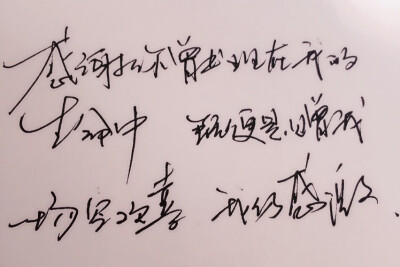 感谢你曾出现在我的
生命中 即便是赠我
一场空欢喜 我仍感激.